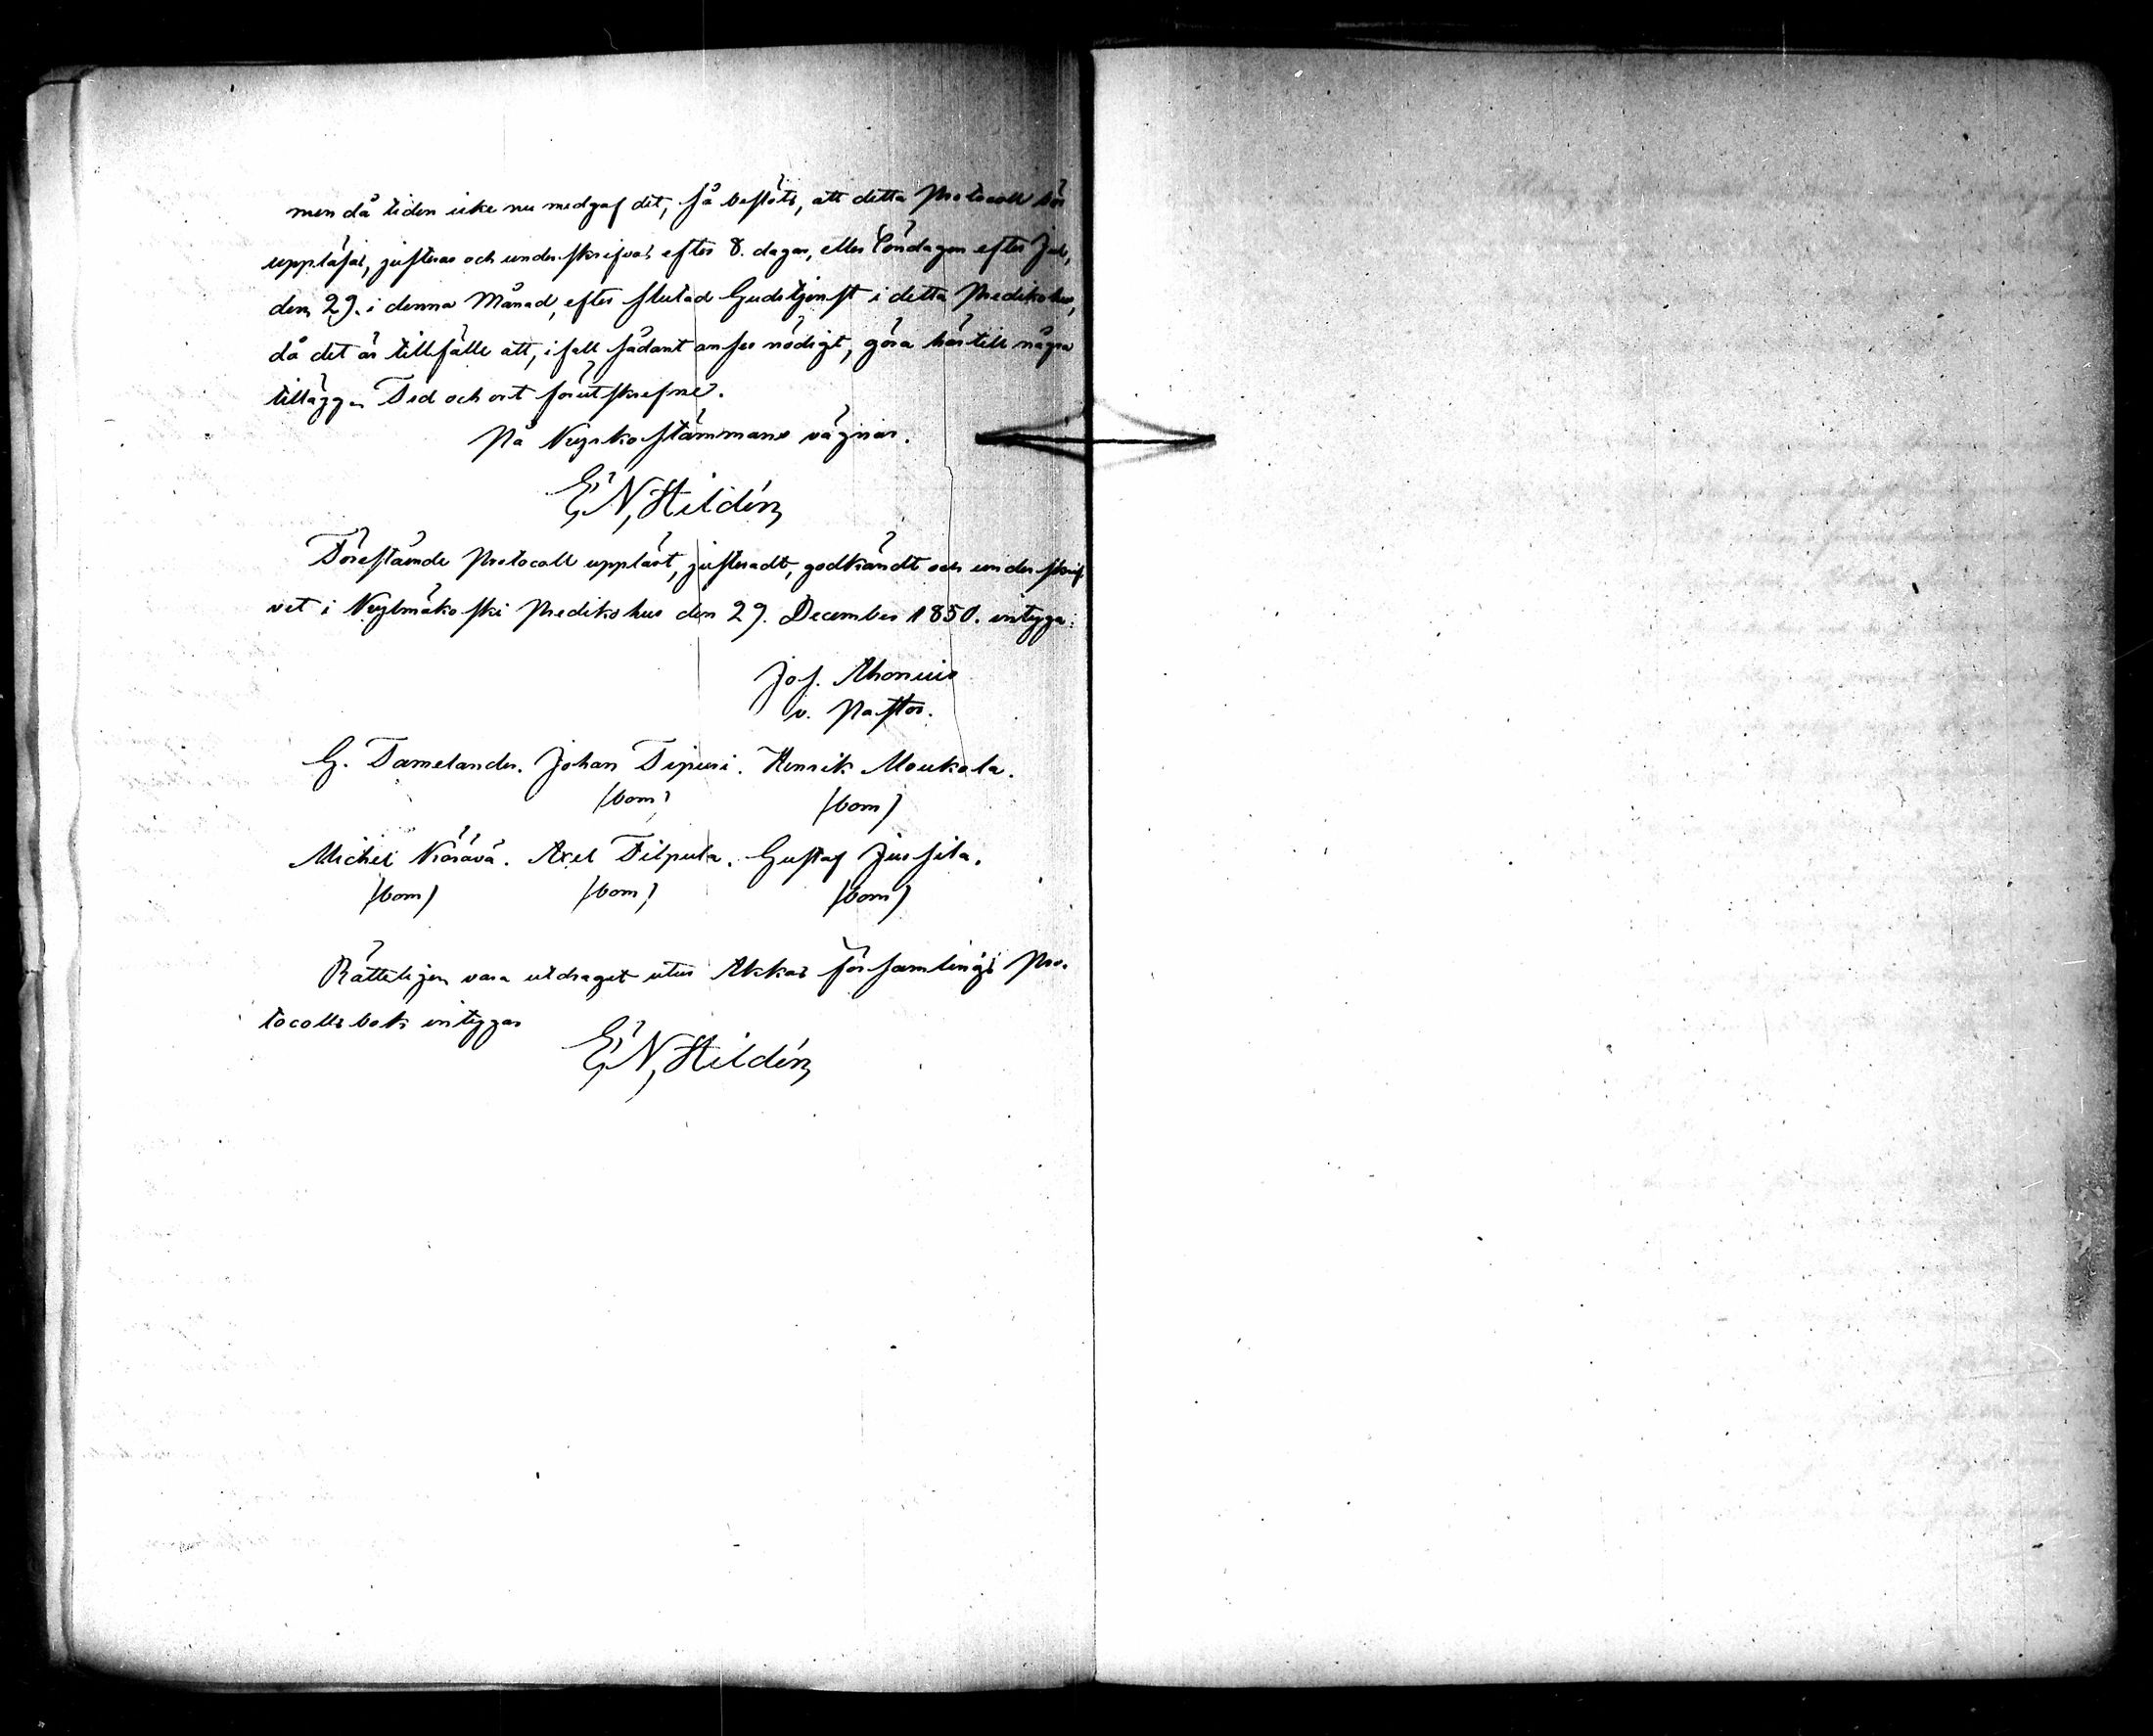 men då tiden icke nu medgaf det, så beslöts, att detta Protocoll bör
uppläsas, justeras och underskrifvas efter 8. dagar, eller Söndagen efter Jul,
den 29. i denna Månad, efter slutad Gudstjenst i detta Predikohus,
då det är tillfälle att, i fall sådant anses nödigt, göra härtill några
tillägg. Tid och ort förutskrefne.
På Kyrkostämmans vägnar.
E. N. Hildén
Förestående Protocoll uppläst, justeradt, godkändt och underskrif
vet i Kylmäkoski Predikohus den 29. December 1850. intyga:
Jos. Ahonius
v. Pastor.
G. Tamelander. Johan Sipuri. Henrik Moukola.
(bom) (bom)
Michel Kärävä. Axel Tilpula. Gustaf Jussila.
(bom) (bom) (bom)
Rätteligen vara utdraget utur Akkas församlings Pro-
tocolls bok intygar
E. N. Hildén